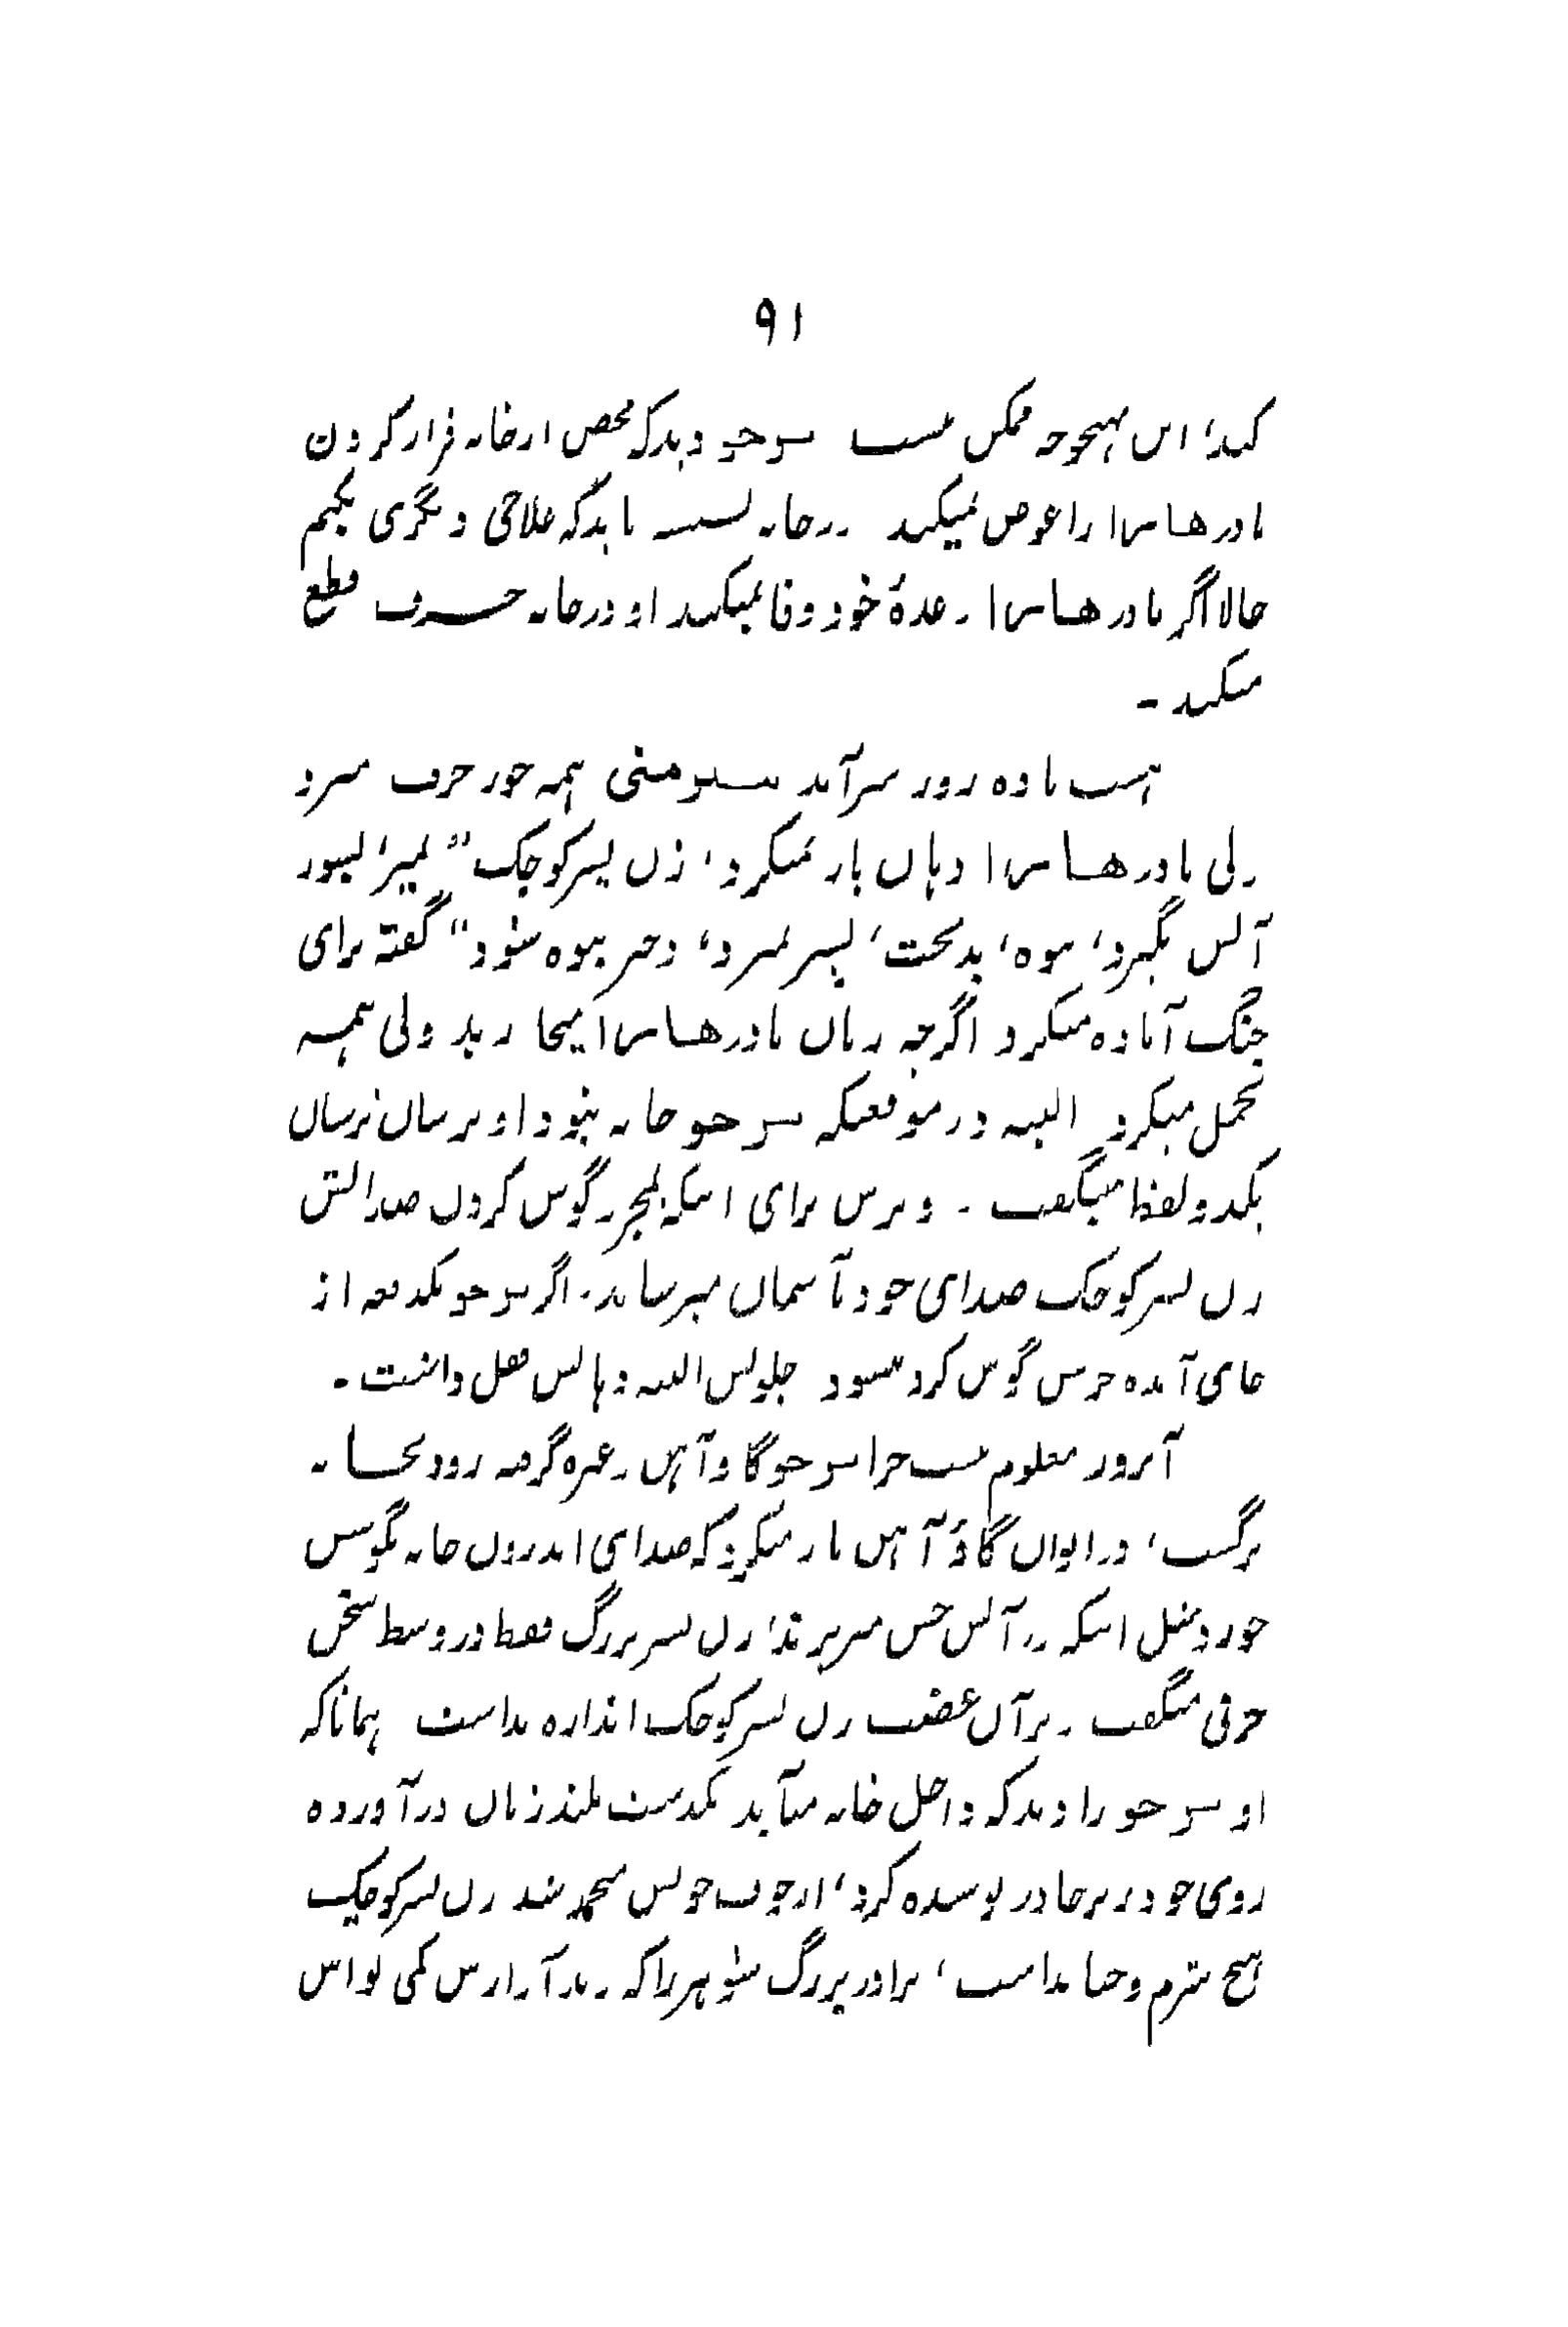 ۹۱
کند، این بهیچوجه ممکن نیست شوجو دید که محض از خانه فرار کردن
مادر هاشرا را عوض نمیکند در خانه نشسته باید که علاجی دیگری بکنیم
حالا اگر مادر هاشرا وعدهٔ خود وفا نمیکند او در خانه حرف قطع
میکند -
هشت تا ده روز سر آمد شنومنی همه جور حرف میزد
ولی مادر هاشرا دهان باز نمیکرد، زن پسر کوچک "بمیر، بسوز
آتش بگیرد، بیوه، بدبخت، پسر بمیرد، دختر بیوه شود" گفته برای
جنگ آماده میکرد اگرچه زبان مادر هاشرا میخارید ولی همه
تحمل میکرد البته در موقعیکه شوجو خانه نبود او ترسان ترسان
یکدو لفظ میگفت - و ترس برای اینکه بمجرد گوش کردن صدایش
زن پسر کوچک صدای خود تا آسمان میرساند - اگر شوجو یکدفعه از
جای آمده حرفش گوش کرد میشود جلویش البته دهانش قفل داشت -
آنروز معلوم نیست چرا شوجو گاو آهن و غیره گرفته زود بخانه
برگشت، در ایوان گاو آهن باز میکرد که صدای اندرون خانه بگوشش
خورد مثل اینکه در آتش خس میریزند، زن پسر بزرگ فقط در وسط سخن
حرفی میگفت و بر آن غضب زن پسر کوچک اندازه نداشت همانا که
او شوجو را دید که داخل خانه میآید یکدست بلند زبان در آورده
روی خود زیر چادر پوشیده کرد، از جوب خونش منجمد شد زن پسر کوچک
هیچ شرم و حیا نداشت، برادر بزرگ شوهر را که دید آوازش کمی یواش